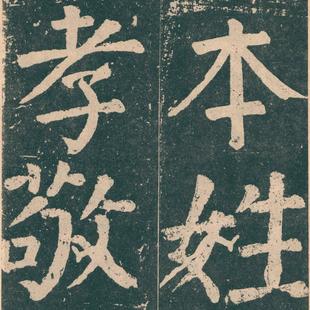 本姓
孝敬